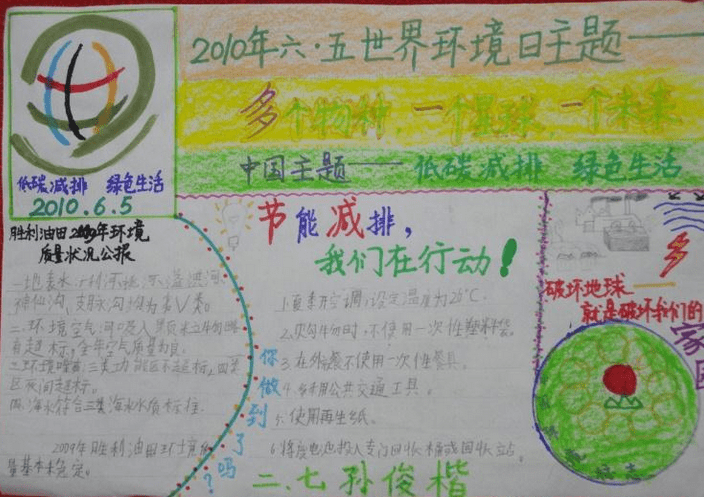 2010年六·五世界环境日主题——
多个物种,一个星球,一个未来
中国主题——低碳减排 绿色生活
低碳减排 绿色生活
2010.6.5
胜利油田2009年环境
质量状况公报
神仙沟,支脉沟均为劣Ⅴ类。
有超标,全年空气质量为良。
三.环境噪声:三类功能区不超标,四类
区夜间超标。
四.海水符合三类海水水质标准。
2009年胜利油田环境质
量基本稳定。
节能减排,
我们在行动!
1.夏季开空调,设定温度为26℃。
2.购物时,不使用一次性塑料袋。
3.在外餐不使用一次性餐具。
4.多利用公共交通工具。
5.使用再生纸。
6.将废电池投入专门回收桶或回收站。
你做到了吗?
破坏地球——
就是破坏我们的
家园
二.七 孙俊楷